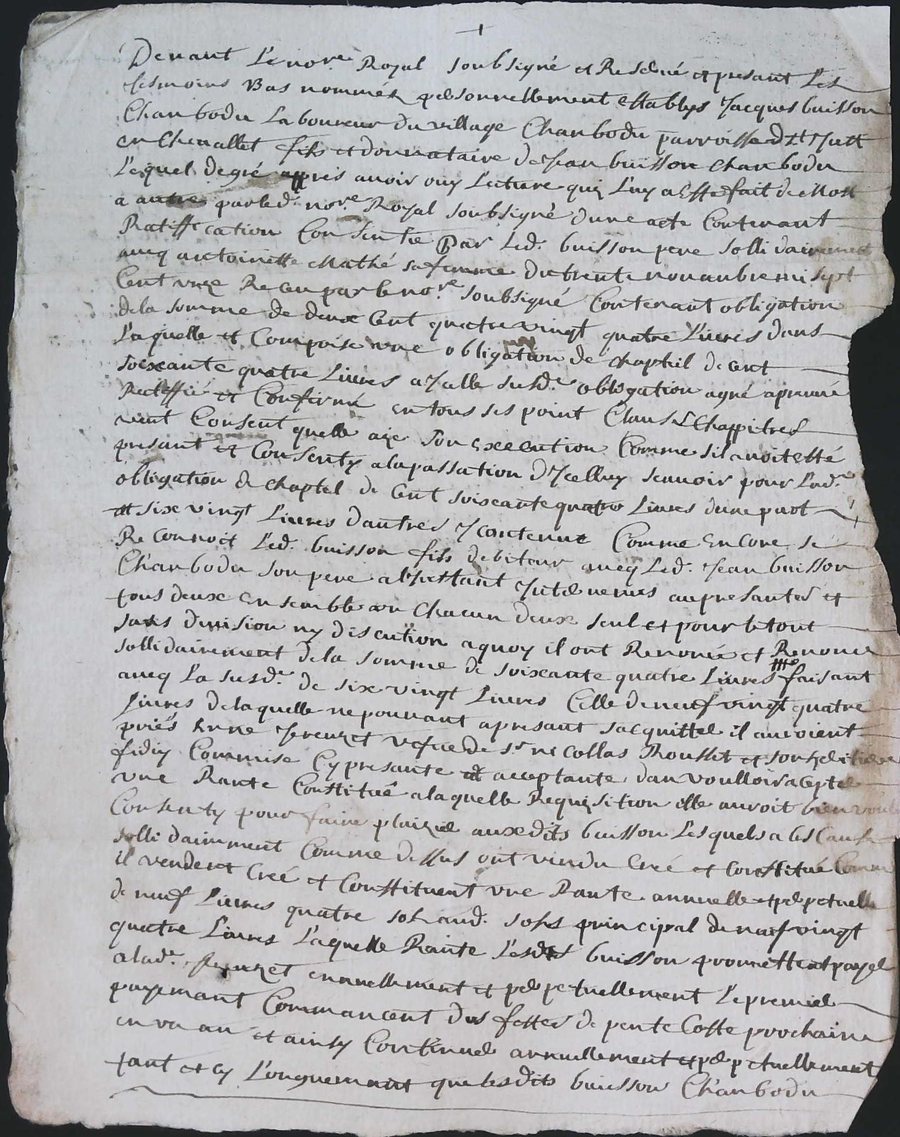 Devant Le nore. Royal soubsigné et Reservé et presant Les
tesmoins Bas nommés personnellement establys Jacques buisson
Chanbodu Laboureur du village Chanbodu parroisse dSt Just
en Chevallet fils et donnataire de Jean buisson Chanbodu
Lequel de gré appres avoir ouy Lecture quy Luy a Este fait de Mot
a autre par led. nore. Royal soubsigné dune acte Contenant
Ratiffication Consentie par Led. buisson pere sollidairement
avecq antoinette Mathé sa femme du trente novanbre mi sept
Cent unze Receu par le nore. soubsigné Contenant obligation
de la somme de deux Cent quatre vingt quatre Livres dans
Laquelle et Comprise une obligation de chapteil de cent
soixante quatre Livres a Jcelle susd. obligation agré apreuve
Ratiffié et Confirmé en tous ses point Clauses Chappitres
veut Consent quelle aie son Exeecution Comme sil avoit esté
presant et Consenty a la passation d'Jcelluy scavoir pour Lad.
obligation de chaptel de Cent soixante quatre Livres dune part
et six vingt Livres d'autres y Contenue Comme Encore se
Reconnoit Led. buisson fils debiteur avecq Led. Jean buisson
Chanbodu son pere au presantes et
tous deux ensemble un Chacun deux seul et pour le tout
sans division ny discution a quoy il ont Renonce et Renonce
sollidairement de la somme de soixante quatre Livres faisant
avecq La susd. de six vingt Livres Celle de neuf vingt quatre
Livres de laquelle ne pouvant apresant sacquitter il auroient
priés Anne vefve de sr. nicollas Rousset et son heritiere
fiduy Commise Cy presante et acceptante dan voulloir acepter
une Rante Constitué a laquelle Requisition elle auroit bien voulu
Consenty pour faire plaizir auxedits buisson Lesquels a
sollidairment Comme dessus ont vendu Creé et Constitué Comme
il vendent Creé et Constituent une Rante annuelle et perpetuelle
de neuf Livres quatre sols aud. sohs principal de neuf vingt
quatre Livres Laquelle Rante Lesdts buisson promettent payer
a lad. annuellement et perpetuellement Le premier
payemant Commancent des festes de pente Coste prochaine
en un an et ainsy Continuer annuellement et perpetuellement
tant et sy Longuemant que lesdits buisson Chanbodu